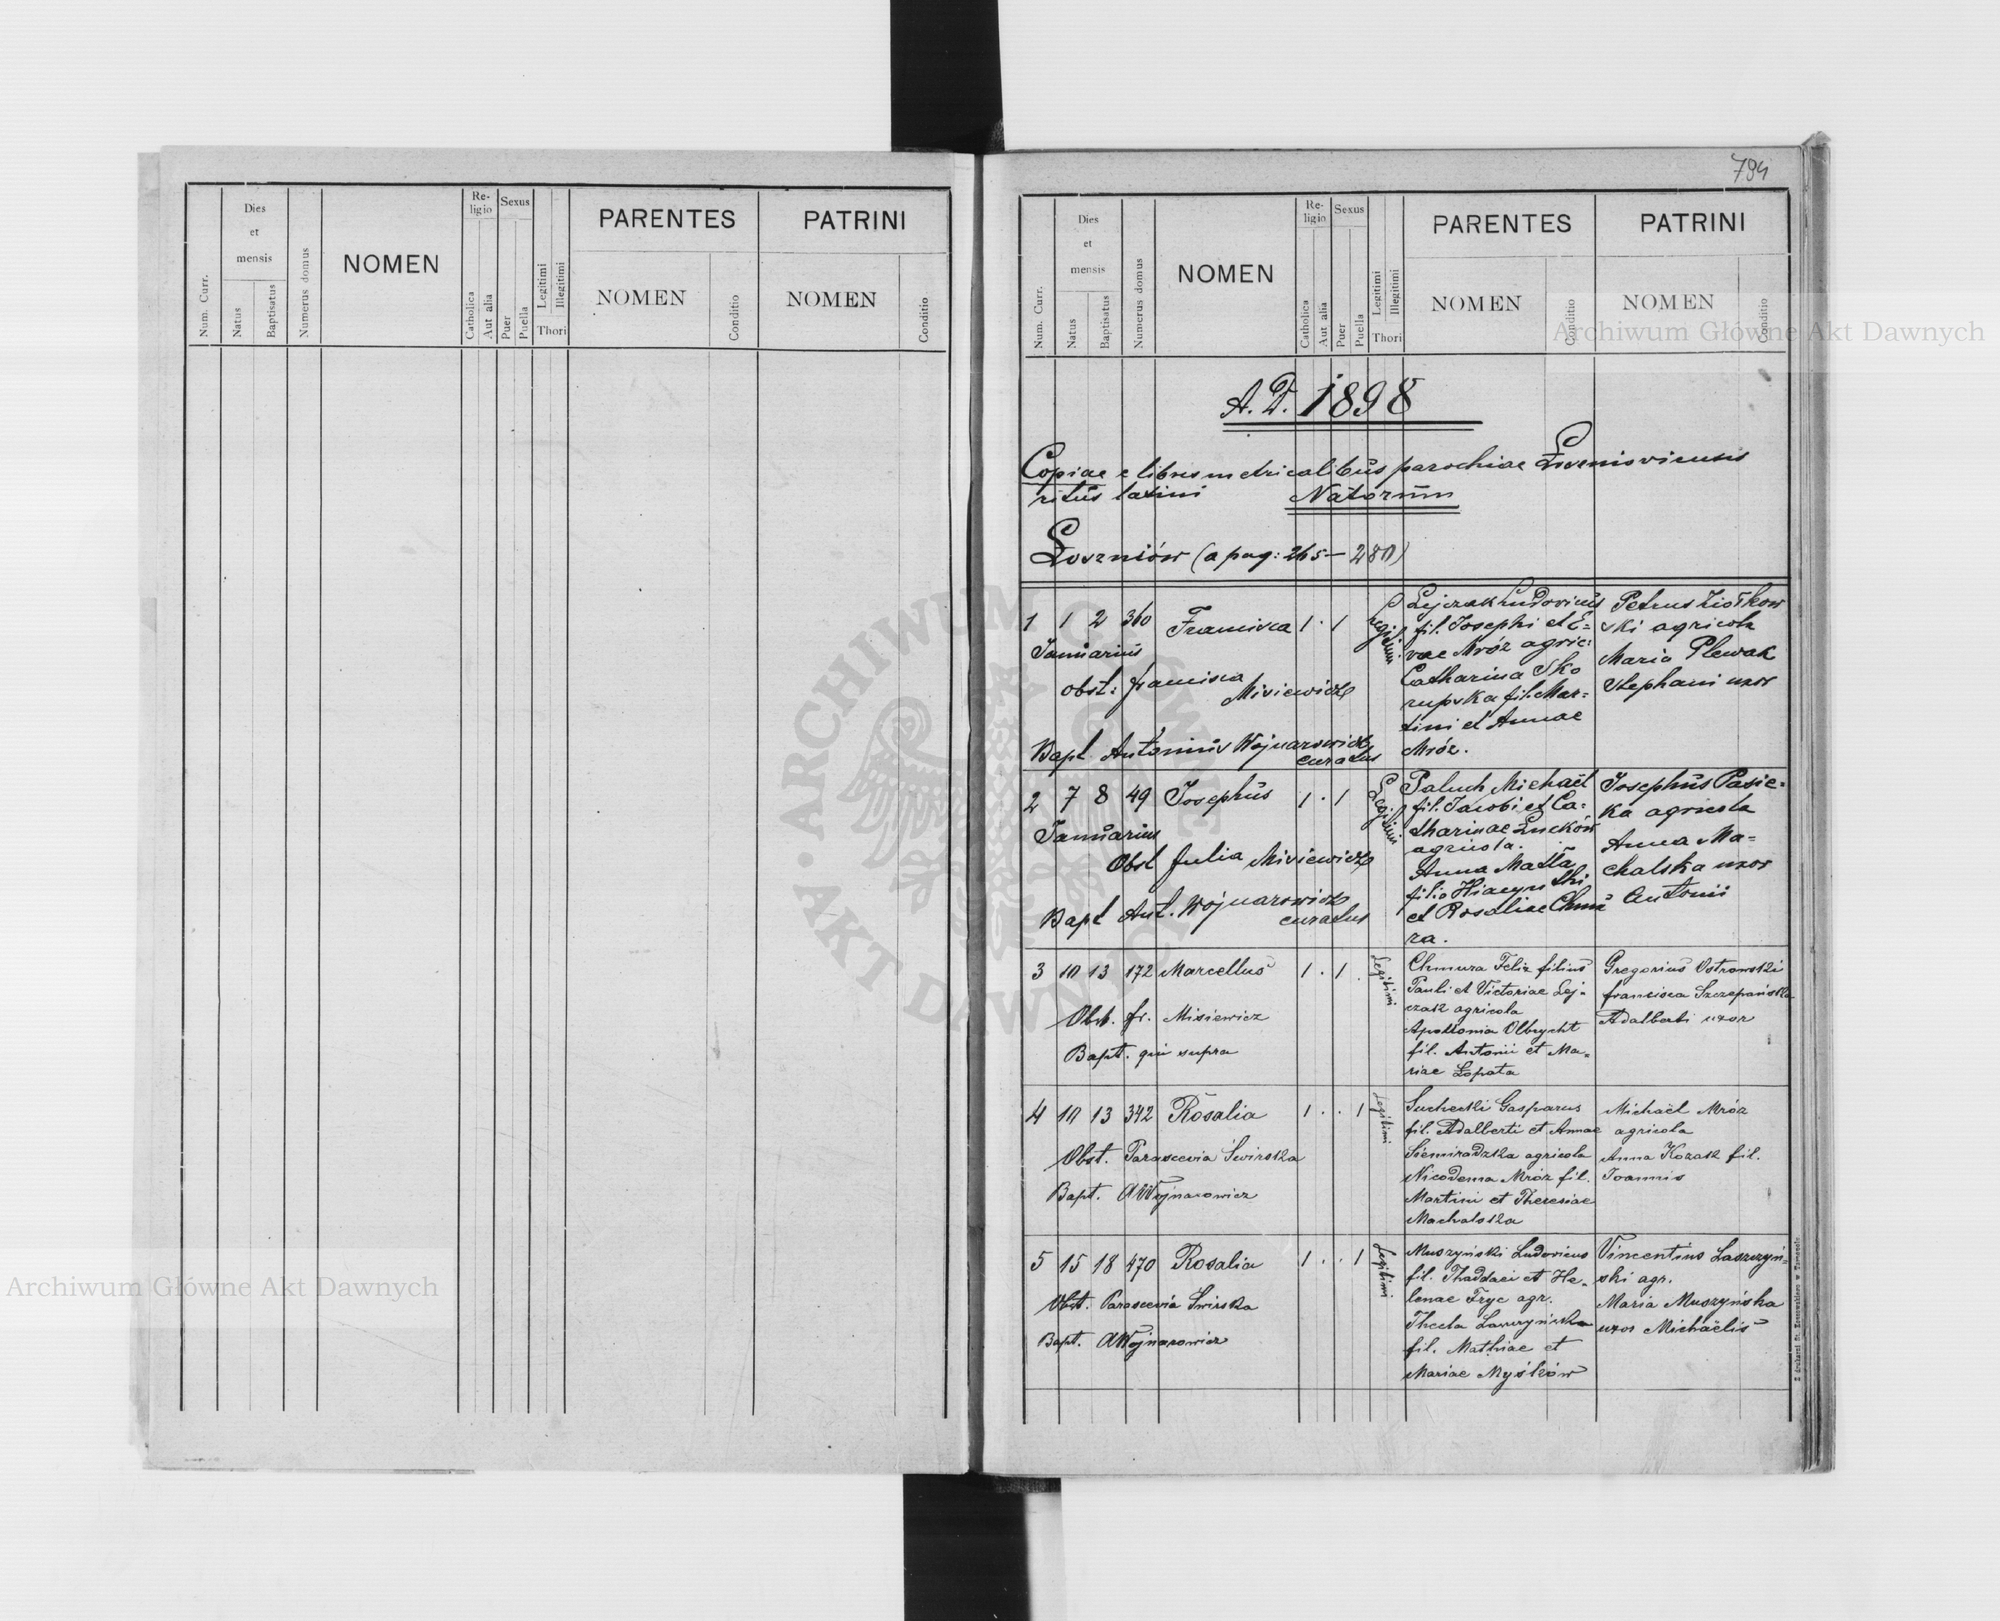 794
Num. Curr.
Dies
et
mensis
Natus
Baptisatus
Numerus domus
NOMEN
Re-
ligio
Catholica
Aut alia
Sexus
Puer
Puella
Legitimi
Illegitimi
Thori
PARENTES
NOMEN
Conditio
PATRINI
NOMEN
Conditio
Num. Curr.
Dies
et
mensis
Natus
Baptisatus
Numerus domus
NOMEN
Re-
ligio
Catholica
Aut alia
Sexus
Puer
Puella
Legitimi
Illegitimi
Thori
PARENTES
NOMEN
Conditio
PATRINI
NOMEN
Conditio
A. D. 1898
Copiae e libris metricalibus parochiae Łosznioviensis
ritus latini Natorum
Łoszniów (a pag: 265 – 280)
1 1 2 360 Francisca 1 . 1
Januarius
obst: Francisca
Misiewicz
Bapt Antonius Wojnarowicz
curatus
Legitimi
Lejczak Ludovicus
fil. Josephi et E-
vae Mróz agric:
Catharina Sko
rupska fil. Mar-
tini et Annae
Mróz.
Petrus Ziółkow
ski agricola
Maria Plewak
Stephani uxor
2 7 8 49 Josephus 1 . 1
Januarius
Obst Julia Misiewicz
Bapt Ant. Wojnarowicz
curatus
Legitimi
Paluch Michael
fil. Jacobi et Ca-
tharinae Łuków
agricola.
Anna Matła
filia Hiacynthi
et Rosaliae Chmu
ra.
Josephus Pasie-
ka agricola
Anna Ma-
chalska uxor
Antonii
3 10 13 172 Marcellus 1 . 1
Obst. Fr. Misiewicz
Bapt. qui supra
Legitimi
Chmura Felix filius
Pauli et Victoriae Lej-
czak agricola
Apollonia Olbrycht
fil. Antonii et Ma-
riae Łopata
Gregorius Ostrowski
Francisca Szczepańska
Adalberti uxor
4 10 13 342 Rosalia 1 . . 1
Obst. Parascevia Świrska
Bapt. AWojnarowicz
Legitimi
Suchecki Gasparus
fil. Adalberti et Annae
Siemiradzka agricola
Nicodema Mróz fil.
Martini et Theresiae
Machalska
Michaël Mróz
agricola
Anna Kozak fil.
Joannis
5 15 18 470 Rosalia 1 . . 1
Obst. Parascevia Świrska
Bapt. AWojnarowicz
Legitimi
Muszyński Ludovicus
fil. Thaddaei et He-
lenae Fryc agr.
Thecla Laszczyńska
fil. Mathiae et
Mariae Myśków
Vincentius Laszczyń-
ski agr.
Maria Muszyńska
uxor Michaëlis
Archiwum Główne Akt Dawnych
Archiwum Główne Akt Dawnych
ARCHIWUM GŁÓWNE
AKT DAWNYCH